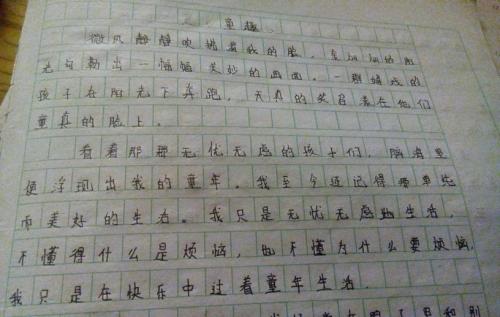 童趣
微风静静吹拂着我的脸,
光勾勒出一幅幅美妙的画面。一群嬉戏的
孩子在阳光下奔跑,天真的笑容荡在他们
童真的脸上。
看着那那无忧无虑的孩子们,脑海里
便浮现出我的童年。我至今还记得那单纯
而美好的生活。我只是无忧无虑地生活,
不懂得什么是烦恼,也不懂为什么要烦恼,
我只是在快乐中过着童年生活.